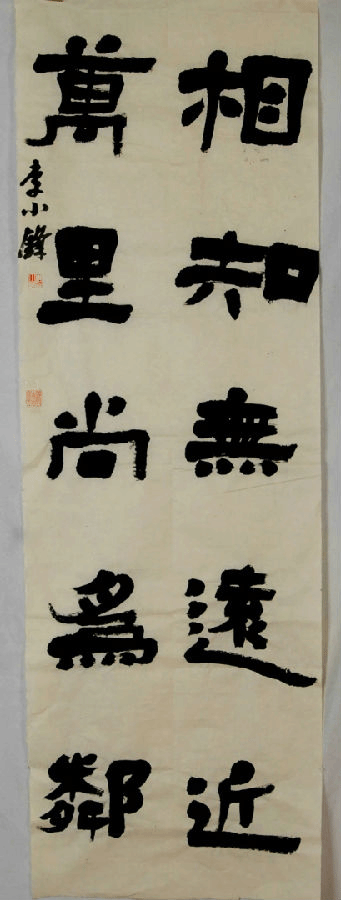 相知無遠近
萬里尚為鄰
李小鋒